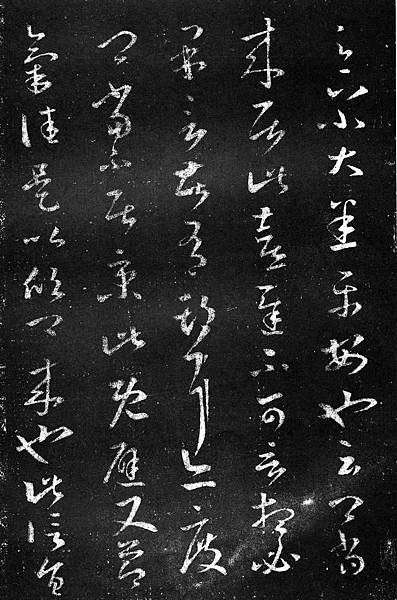 足下小大悉平安也云卿當
來居此喜遲不可言想必
果言告有期耳亦度
卿當不居京此既避又節
氣佳是以欣卿來也此信旨